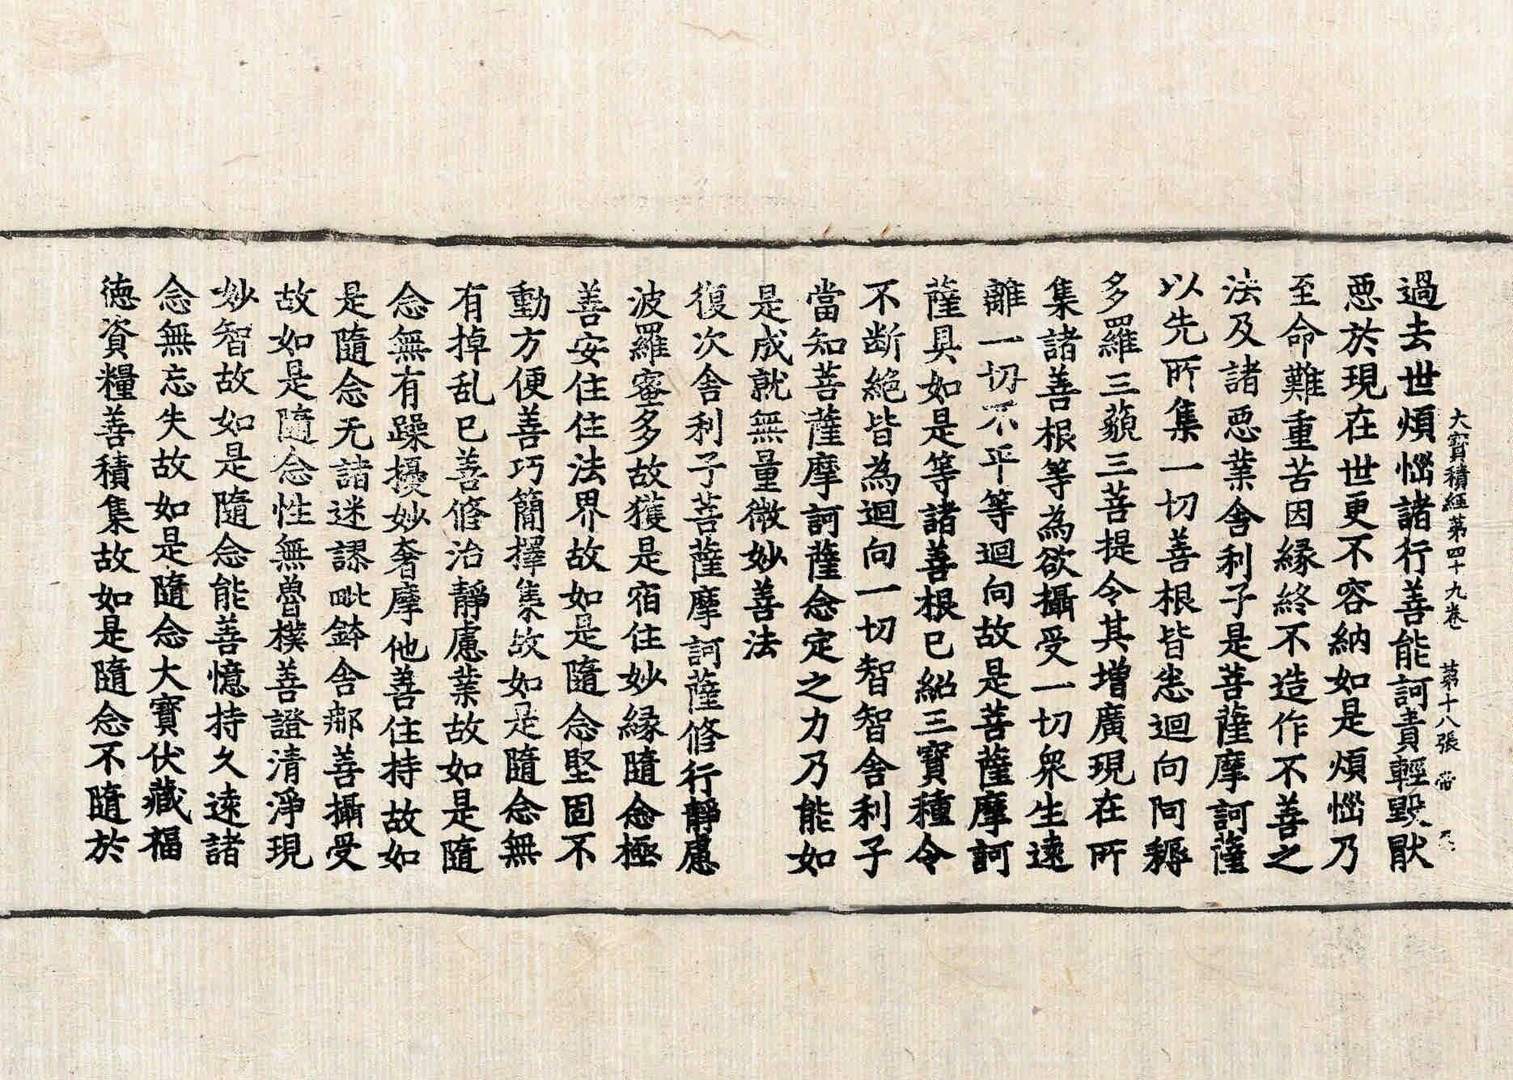 大寶積經第四十九卷　第十八張　帝
過去世煩惱諸行善能訶責輕毀猒
惡於現在世更不容納如是煩惱乃
至命難重苦因緣終不造作不善之
法及諸惡業舍利子是菩薩摩訶薩
以先所集一切善根皆悉迴向阿耨
多羅三藐三菩提令其增廣現在所
集諸善根等為欲攝受一切衆生遠
離一切不平等迴向故是菩薩摩訶
薩具如是等諸善根已紹三寶種令
不断絕皆為迴向一切智智舍利子
當知菩薩摩訶薩念定之力乃能如
是成就無量微妙善法
復次舍利子菩薩摩訶薩修行靜慮
波羅蜜多故獲是宿住妙緣隨念極
善安住住法界故如是隨念堅固不
動方便善巧簡擇集故如是隨念無
有掉乱已善修治靜慮業故如是隨
念無有躁擾妙奢摩他善住持故如
是隨念无諸迷謬毗鉢舍那善攝受
故如是隨念性無魯樸善證清淨現
妙智故如是隨念能善憶持久遠諸
念無忘失故如是隨念大寶伏藏福
德資糧善積集故如是隨念不隨於